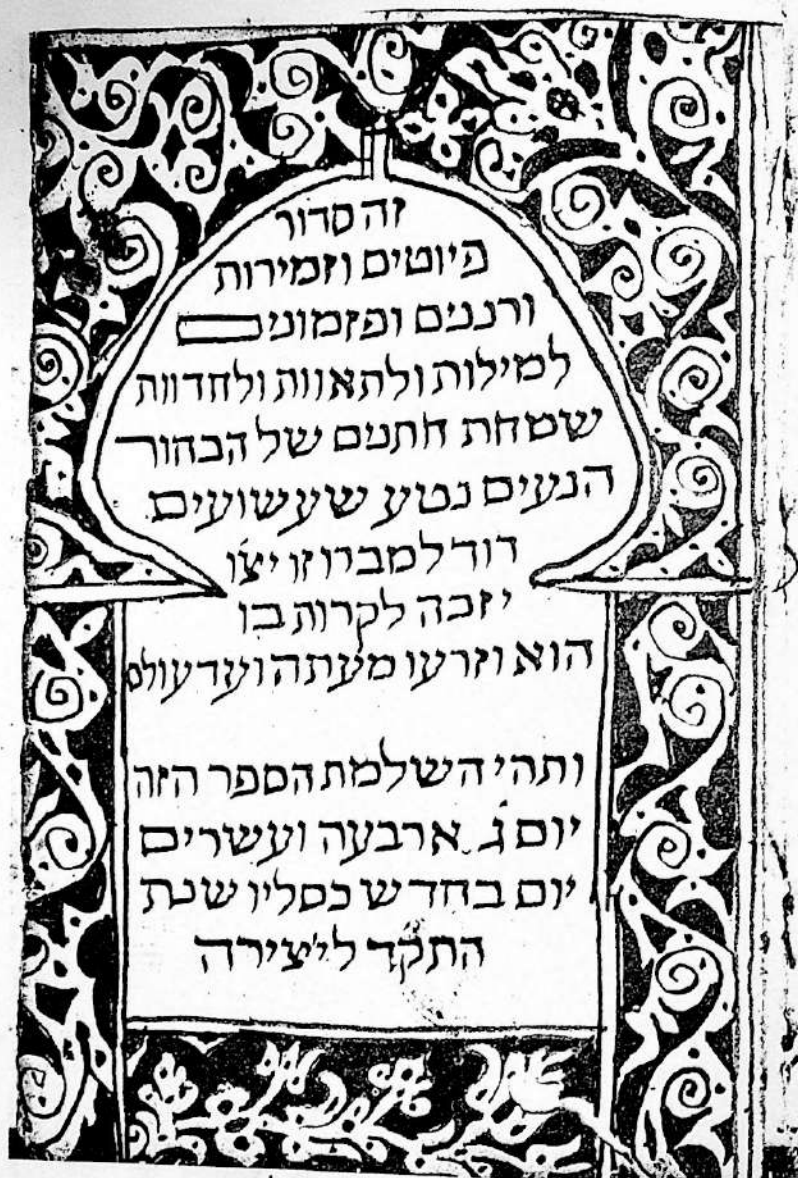 זה סדור
פיוטים וזמירות
ורננים ופזמונים
למילות ולתאוות ולחדוות
שמחת חתנים של הבחור
הנעים נטע שעשועים
דוד למברוזו יצ֗ו
יזכה לקרות בו
הוא וזרעו מעתה ועד עולם
ותהי השלמת הספר הזה
יום ג֗ ארבעה ועשרים
יום בחדש כסליו שנת
התקד ליצירה